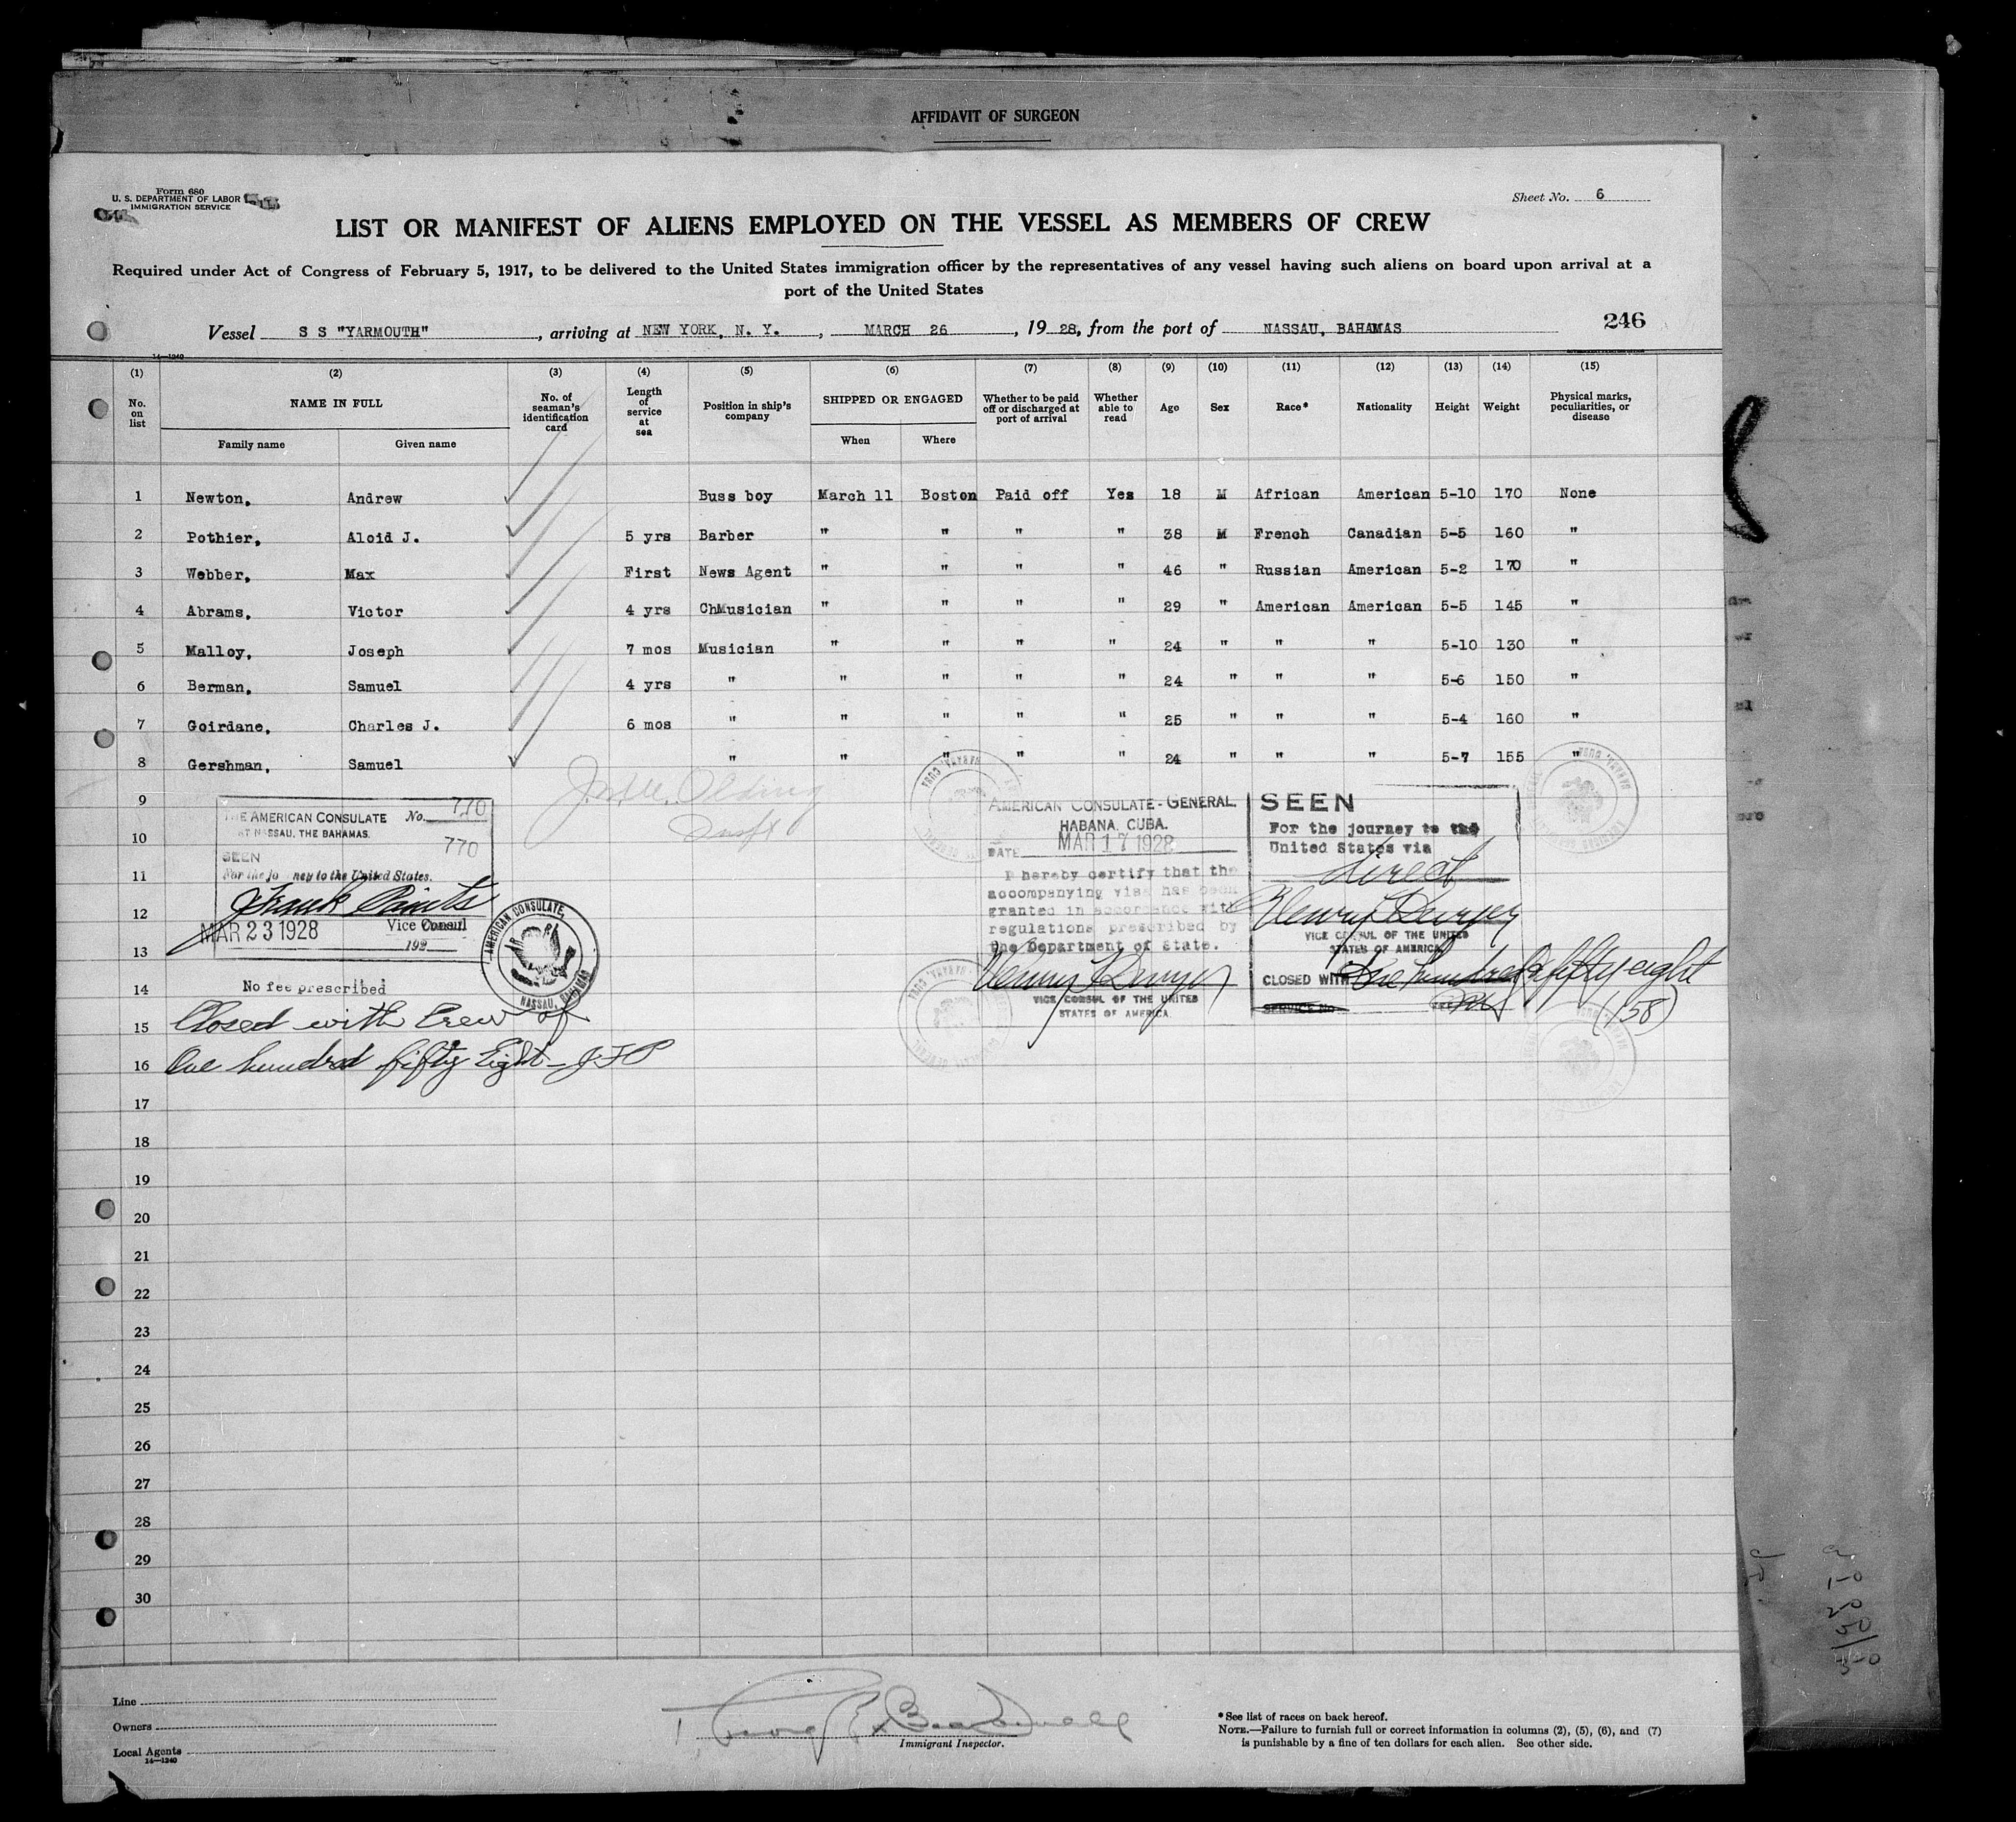 AFFIDAVIT OF SURGEON
Form 680
U. S. DEPARTMENT OF LABOR
IMMIGRATION SERVICE
Sheet No. 6
LIST OR MANIFEST OF ALIENS EMPLOYED ON THE VESSEL AS MEMBERS OF CREW
Required under Act of Congress of February 5, 1917, to be delivered to the United States immigration officer by the representatives of any vessel having such aliens on board upon arrival at a
port of the United States
Vessel S S "YARMOUTH" , arriving at NEW YORK, N. Y. , MARCH 26 , 19 28, from the port of NASSAU, BAHAMAS 246
14—1240
(1) (2) (3) (4) (5) (6) (7) (8) (9) (10) (11) (12) (13) (14) (15)
No. on list NAME IN FULL Family name Given name No. of seaman's identification card Length of service at sea Position in ship's company SHIPPED OR ENGAGED When Where Whether to be paid off or discharged at port of arrival Whether able to read Age Sex Race* Nationality Height Weight Physical marks, peculiarities, or disease
1 Newton, Andrew Buss boy March 11 Boston Paid off Yes 18 M African American 5-10 170 None
2 Pothier, Aloid J. 5 yrs Barber " " " " 38 M French Canadian 5-5 160 "
3 Webber, Max First News Agent " " " " 46 " Russian American 5-2 170 "
4 Abrams, Victor 4 yrs ChMusician " " " " 29 " American American 5-5 145 "
5 Malloy, Joseph 7 mos Musician " " " " 24 " " " 5-10 130 "
6 Berman, Samuel 4 yrs " " " " " 24 " " " 5-6 150 "
7 Goirdane, Charles J. 6 mos " " " " " 25 " " " 5-4 160 "
8 Gershman, Samuel " " " " " 24 " " " 5-7 155 "
9
10
11
12
13
14
15
16
17
18
19
20
21
22
23
24
25
26
27
28
29
30
THE AMERICAN CONSULATE No. 770
AT NASSAU, THE BAHAMAS.
770
SEEN
For the journey to the United States.
Frank
MAR 23 1928 Vice Consul
192
AMERICAN CONSULATE,
NASSAU, BAHAMAS
No fee prescribed
Closed with Crew of
One hundred fifty Eight - JFP
Olding
Insp
AMERICAN CONSULATE-GENERAL.
HABANA, CUBA.
DATE MAR 17 1928
I hereby certify that the
accompanying visa has been
granted in accordance with
regulations prescribed by
the Department of State.
VICE CONSUL OF THE UNITED
STATES OF AMERICA.
SEEN
For the journey to the
United States via
direct
VICE CONSUL OF THE UNITED
STATES OF AMERICA
CLOSED WITH One hundred & fifty eight
(158)
SERVICE No.
Line
Owners
Local Agents
14—1240
Immigrant Inspector.
*See list of races on back hereof.
NOTE.—Failure to furnish full or correct information in columns (2), (5), (6), and (7)
is punishable by a fine of ten dollars for each alien. See other side.